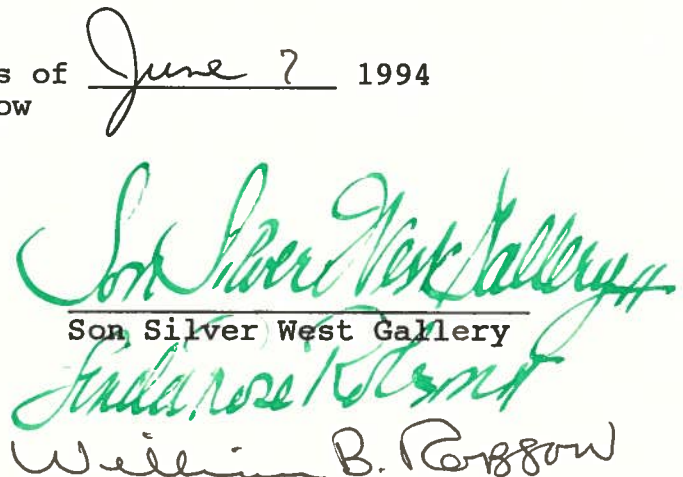 s of June 7 1994
ow
Son Silver West Gallery
Son Silver West Gallery
Linda Rose
William B. Robson